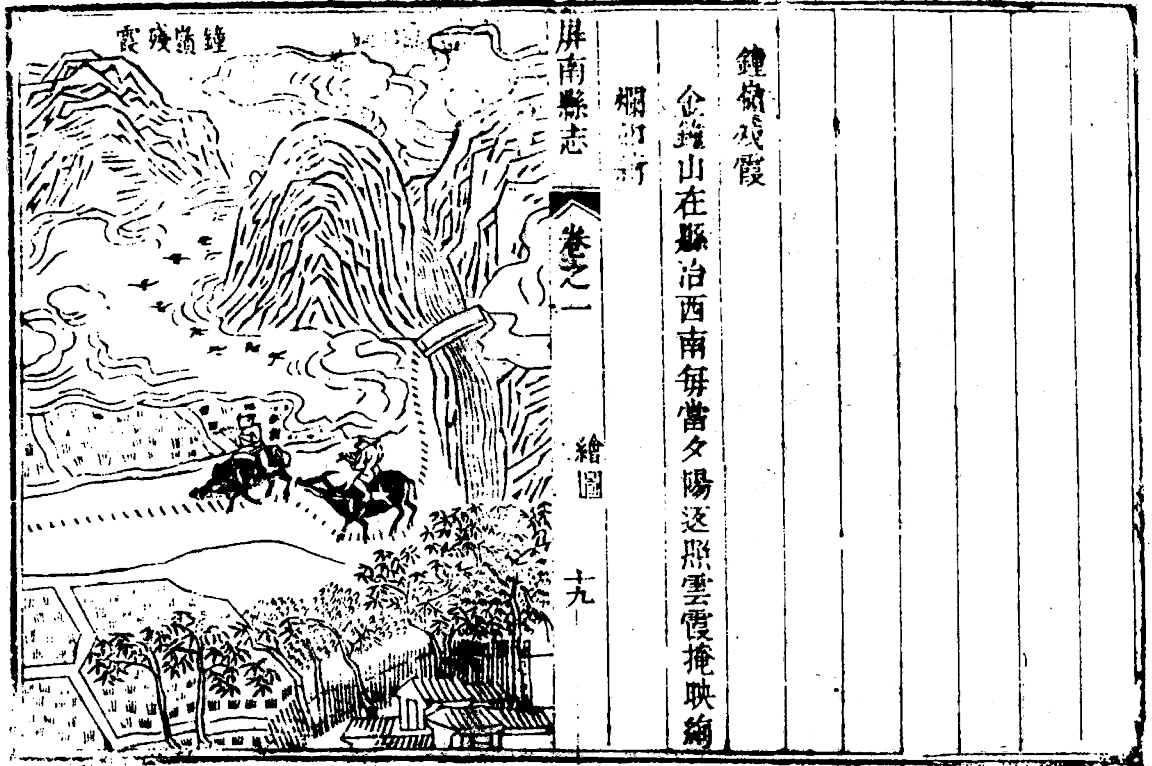 鐘嶺殘霞
金鐘山在縣治西南每當夕陽返照雲霞掩映絢
爛
屏南縣志
卷之一
繪圖
十九
鐘嶺殘霞